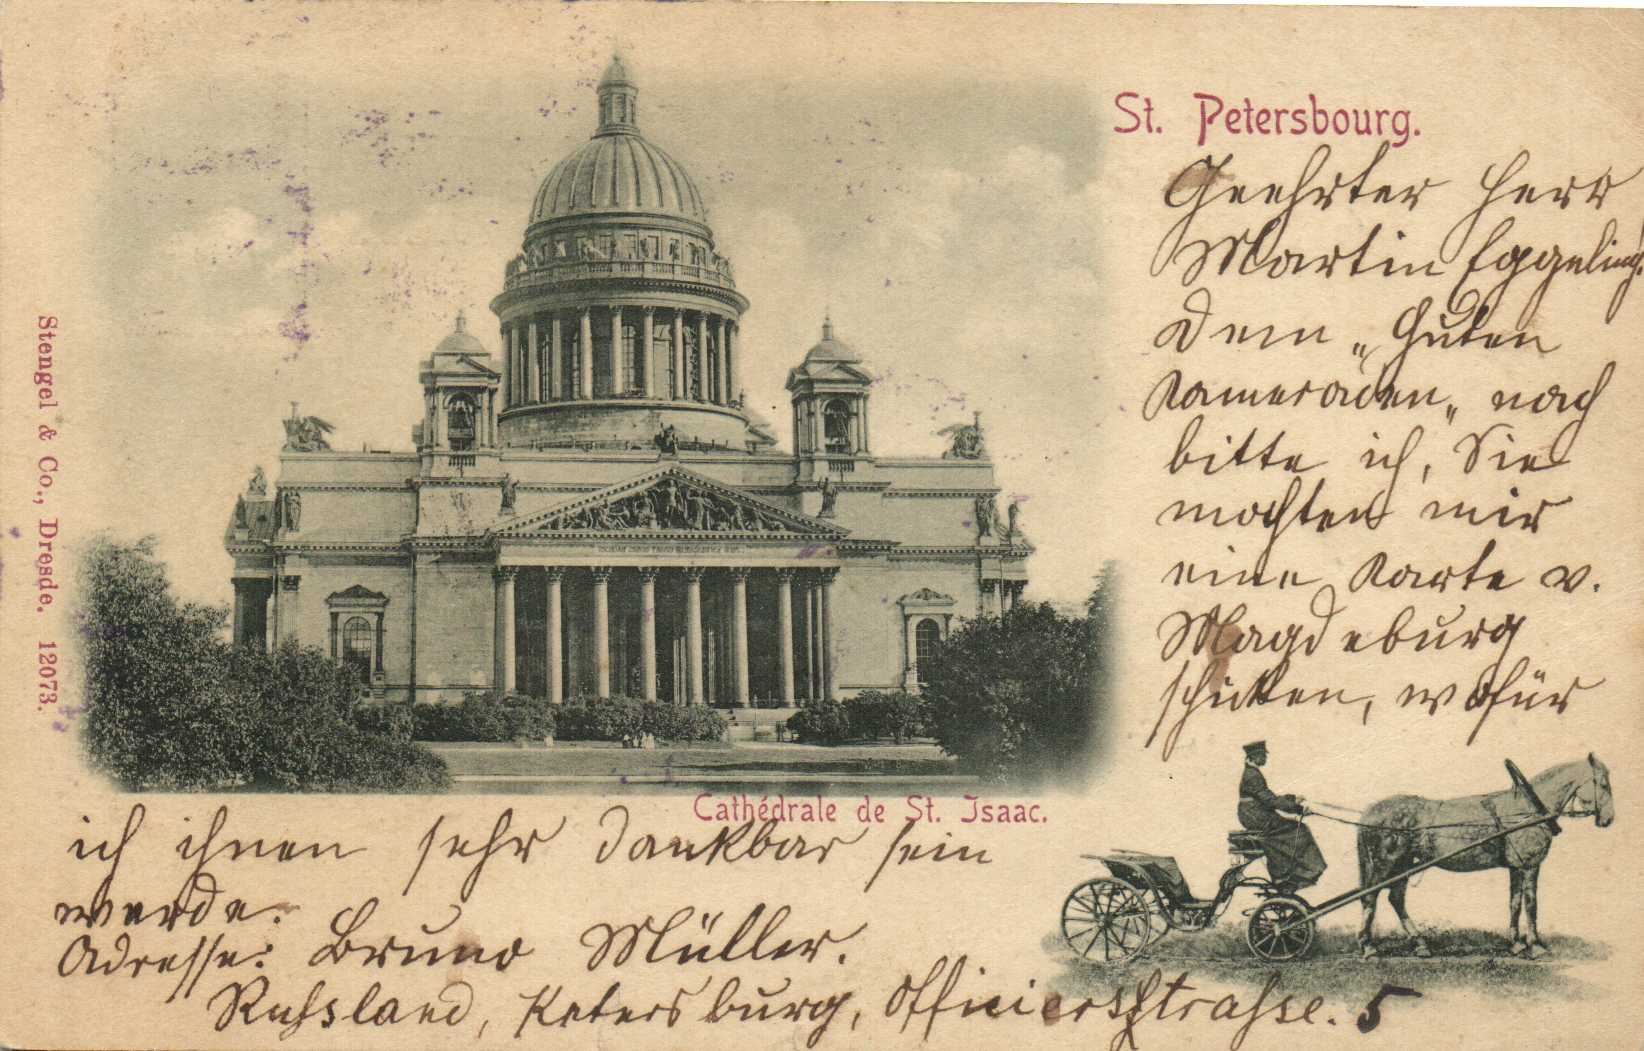 St. Petersbourg.
Geehrter Herr
Martin Eggeling.
Dem „Guten
Kameraden„ nach
bitte ich, Sie
mochten mir
eine Karte v.
Magdeburg
schicken, wofür
Cathédrale de St. Isaac.
ich ihnen sehr dankbar sein
werde.
Adresse: Bruno Müller.
Russland, Petersburg, Officiersstrasse. 5
Stengel & Co., Dresde. 12073.